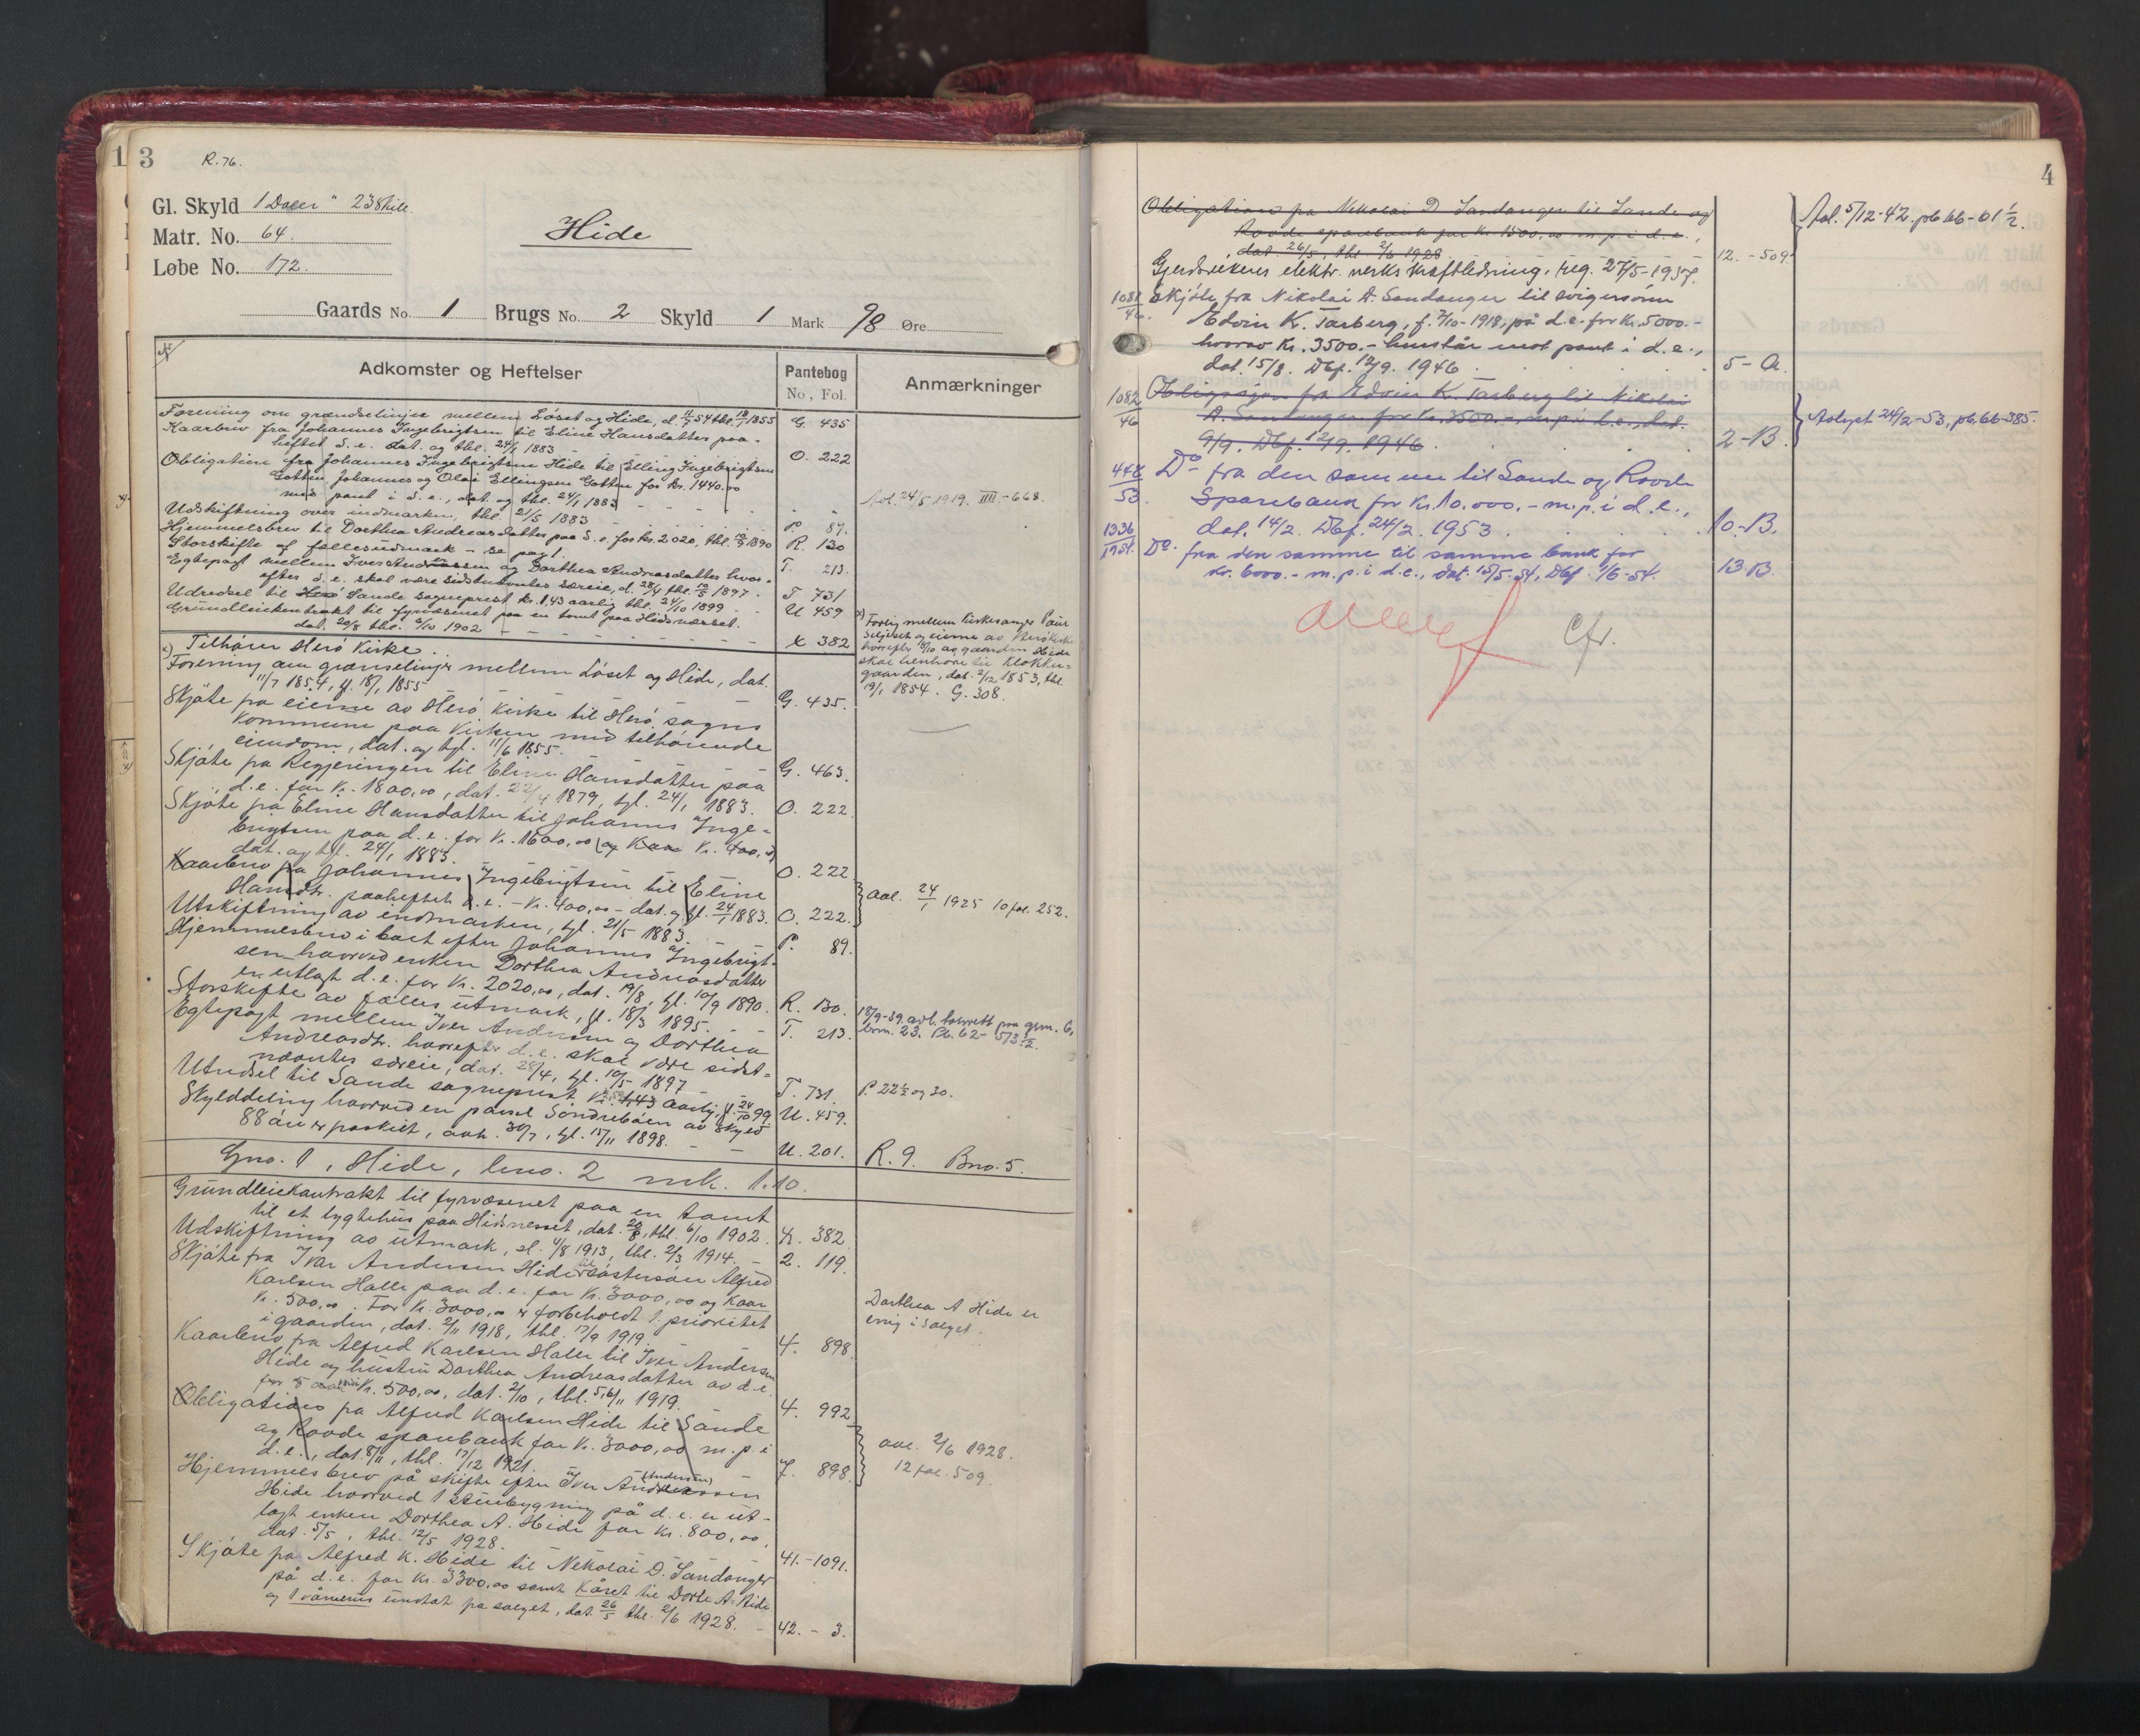 3
R. 76.
Gl. Skyld 1 Daler " 23 Skill.
Matr. No. 64.
Løbe No. 172.
Hide
Gaards No. 1 Brugs No. 2 Skyld 1 Mark 98 Øre
Adkomster og Heftelser
Pantebog
No, Fol.
Anmærkninger
Forening om grændselinjer mellem Løset og Hide, d. 11/7 54 thl. 18/1 1855 G. 435
Kaarbrev fra Johannes Ingebrigtsen til Eline Hansdatter paa-
heftet d. e. dat. og thl. 24/1 1883 O. 222
Obligation fra Johannes Ingebrigtsen Hide til Elling Ingebrigtsen
Gotten, Johannes og Olai Ellingsen Gotten for kr. 1440.00
med pant i d. e., dat. og thl. 24/1 1883 " "
Avl. 24/5 1919. III - 668.
Udskiftning over indmarken, thl. 21/5 1883 P. 87.
Hjemmelsbrev til Dorthea Andreasdatter paa d. e. for kr. 2020, thl. 10/9 1890 R. 130
Storskifte af fællesudmark - se pag 1. T. 213.
Egtepagt mellem Iver Andreassen og Dorthea Andreasdatter hvor-
efter d. e. skal være sidstnævntes særeie, d. 28/4 thl. 10/5 1897. T 731
Udredsel til Herø Sande sogneprest kr. 1,43 aarlig thl. 24/10 1899 U 459
Grundleiekontrakt til fyrvæsenet paa en tomt paa Hidsnæsset.
dat. 20/8 thl. 6/10 1902 X 382
x) Forlig mellem Kirkesanger Paul
Seljeset og eierne av Herø Kirke
hvorefter 1/10 av gaarden Hide
skal henhøre til Klokker-
gaarden, dat. 2/12 1853, thl.
19/1 1854. G. 308.
x) Tilhører Herø Kirke.
Forening om grænselinjer mellem Løset og Hide, dat.
11/7 1854, tl. 18/1 1855 G. 435.
Skjøte fra eierne av Herø Kirke til Herø sogns
kommune paa Kirken med tilhørende
eiendom, dat. og tgl. 11/6 1855. G. 463.
Skjøte fra Regjeringen til Eline Hansdatter paa
d. e. for Kr. 1800,00, dat. 22/4 1879, tgl. 24/1 1883. O. 222.
Skjøte fra Eline Hansdatter til Johannes Inge-
brigtsen paa d. e. for Kr. 1600,00 (og Kaar Kr. 400,00)
dat. og tgl. 24/1 1883. O. 222
Kaarbrev fra Johannes Ingebrigtsen til Eline
Hansdtr. paaheftet d. e. - Kr. 400,00 - dat. og tl. 24/1 1883. O. 222.
Aal. 24/1 1925 10 fol. 252.
Utskiftning av indmarken, tgl. 21/5 1883. P. 89.
Hjemmelsbrev i boet efter Johannes Ingebrigt-
sen hvorved enken Dorthea Andreasdatter
er utlagt d. e. for Kr. 2020,00, dat. 19/8, tgl. 10/9 1890. R. 130.
Storskifte av fælles utmark, tl. 18/3 1895. T. 213.
18/9-39 avl. torvrett paa gnr. 6,
brm. 23. Pb. 62 - 573 1/2.
Egtepagt mellem Iver Andersen og Dorthea
Andreasdtr. hvorefter d. e. skal være sidst-
nævntes særeie, dat. 28/4, tgl. 10/5 1897 T. 731.
P. 22 1/2 og 30.
Utredsel til Sande sogneprest Kr. 1,43 aarlig, tl. 24/10 99 U. 459.
Skylddeling hvorved en parsel Søndrebøen av skyld
88 øre er fraskilt, avh. 30/7, tgl. 15/11 1898. U. 201.
R. 9. Bno. 5.
Gno. 1, Hide, bno. 2 mk. 1.10.
Grundleiekontrakt til fyrvæsenet paa en tomt
til et lygtehus paa Hidsnesset, dat. 20/8, thl. 6/10 1902. X. 382
Udskiftning av utmark, sl. 4/8 1913, thl. 2/3 1914. 2. 119.
Skjøte fra Ivar Andersen Hide til søstersøn Alfred
Karlsen Halle paa d. e. for Kr. 3000,00 og Kaar
Kr. 500,00. For Kr. 3000,00 er forbeholdt 1. prioritet
i gaarden, dat. 2/11 1918, thl. 17/9 1919. 4. 898.
Dorthea A Hide er
enig i salget.
Kaarbrev fra Alfred Karlsen Halle til Iver Andersen
Hide og hustru Dorthea Andreasdatter av d. e.
for 5 aar Kr. 500,00, dat. 2/10, thl. 5,6/11 1919. 4. 992
Obligation fra Alfred Karlsen Hide til Sande
og Rovde sparebank for Kr. 3000,00 m. p. i
d. e., dat. 8/11, thl. 17/12 1921. 7. 898.
aal. 2/6 1928.
12 fol. 509.
Hjemmelsbrev på skifte efter Iver Andreassen (Andersen)
Hide hvorved 1 stuebygning på d. e. er ut-
lagt enken Dorthea A. Hide for kr. 800,00,
dat. 5/5, thl. 12/5 1928. 41. - 1091.
Skjøte fra Alfred K. Hide til Nekolai D. Sandanger
på d. e. for kr. 3300,00 samt Kåret til Dorte A. Hide
og 1 vånehus undtat fra salget, dat. 26/5 thl. 2/6 1928. 42. - 3.
4
Obligation fra Nekolai D Sandanger til Sande og
Rovde sparebank for kr. 1500,00 m. p. i d. e.,
dat. 26/5, thl. 2/6 1928 12. - 509.
Avl. 5/12-42. pb 66 - 61 1/2.
Gjerdsvikens elektr. verks kraftledning, reg. 27/5-1937.
1081/46. Skjøte fra Nikolai A. Sandanger til svigersønn
Edvin K. Tarberg, f. 7/10-1918, på d. e. for Kr. 5000.-
hvorav kr. 3500.- henstår mot pant i d. e.,
dat. 15/8. Dbf. 12/9. 1946. 5 - A.
1082/46 Obligasjon fra Edvin K. Tarberg til Nikolai
A. Sandanger for Kr. 3500.-, m. p. i d. e., dat.
9/9. Dbf. 12/9. 1946. 2 - B.
Avlyst 24/2-53, pb. 66-385.
448/53. Do fra den samme til Sande og Rovde
Sparebank for Kr. 10.000.- m. p. i d. e.,
dat. 14/2. Dbf. 24/2. 1953. 10-B.
1336/1954. Do. fra den samme til samme bank for
kr. 6000.- m. p. i d. e., dat. 15/5-54, Dbf. 1/6-54. 13-B.
cfr.